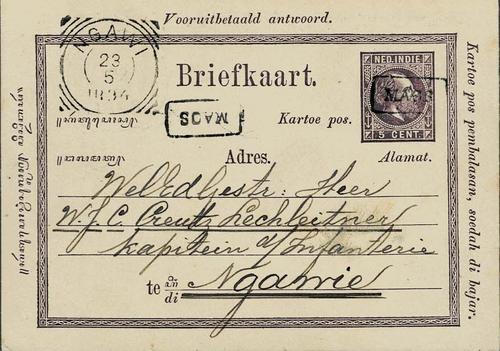 Vooruitbetaald antwoord.
NGAWI
23
5
1884
Briefkaart.
NED. INDIE
5 CENT.
MAOS
MAOS
Kartoe pos.
Adres.
Alamat.
WelEdGestr: Heer
W.J.C. Creutz Lechleitner
Kapitein d/ Infanterie
te an/di Ngawie
Kartoe pos pembalasan, soedah di bajar.